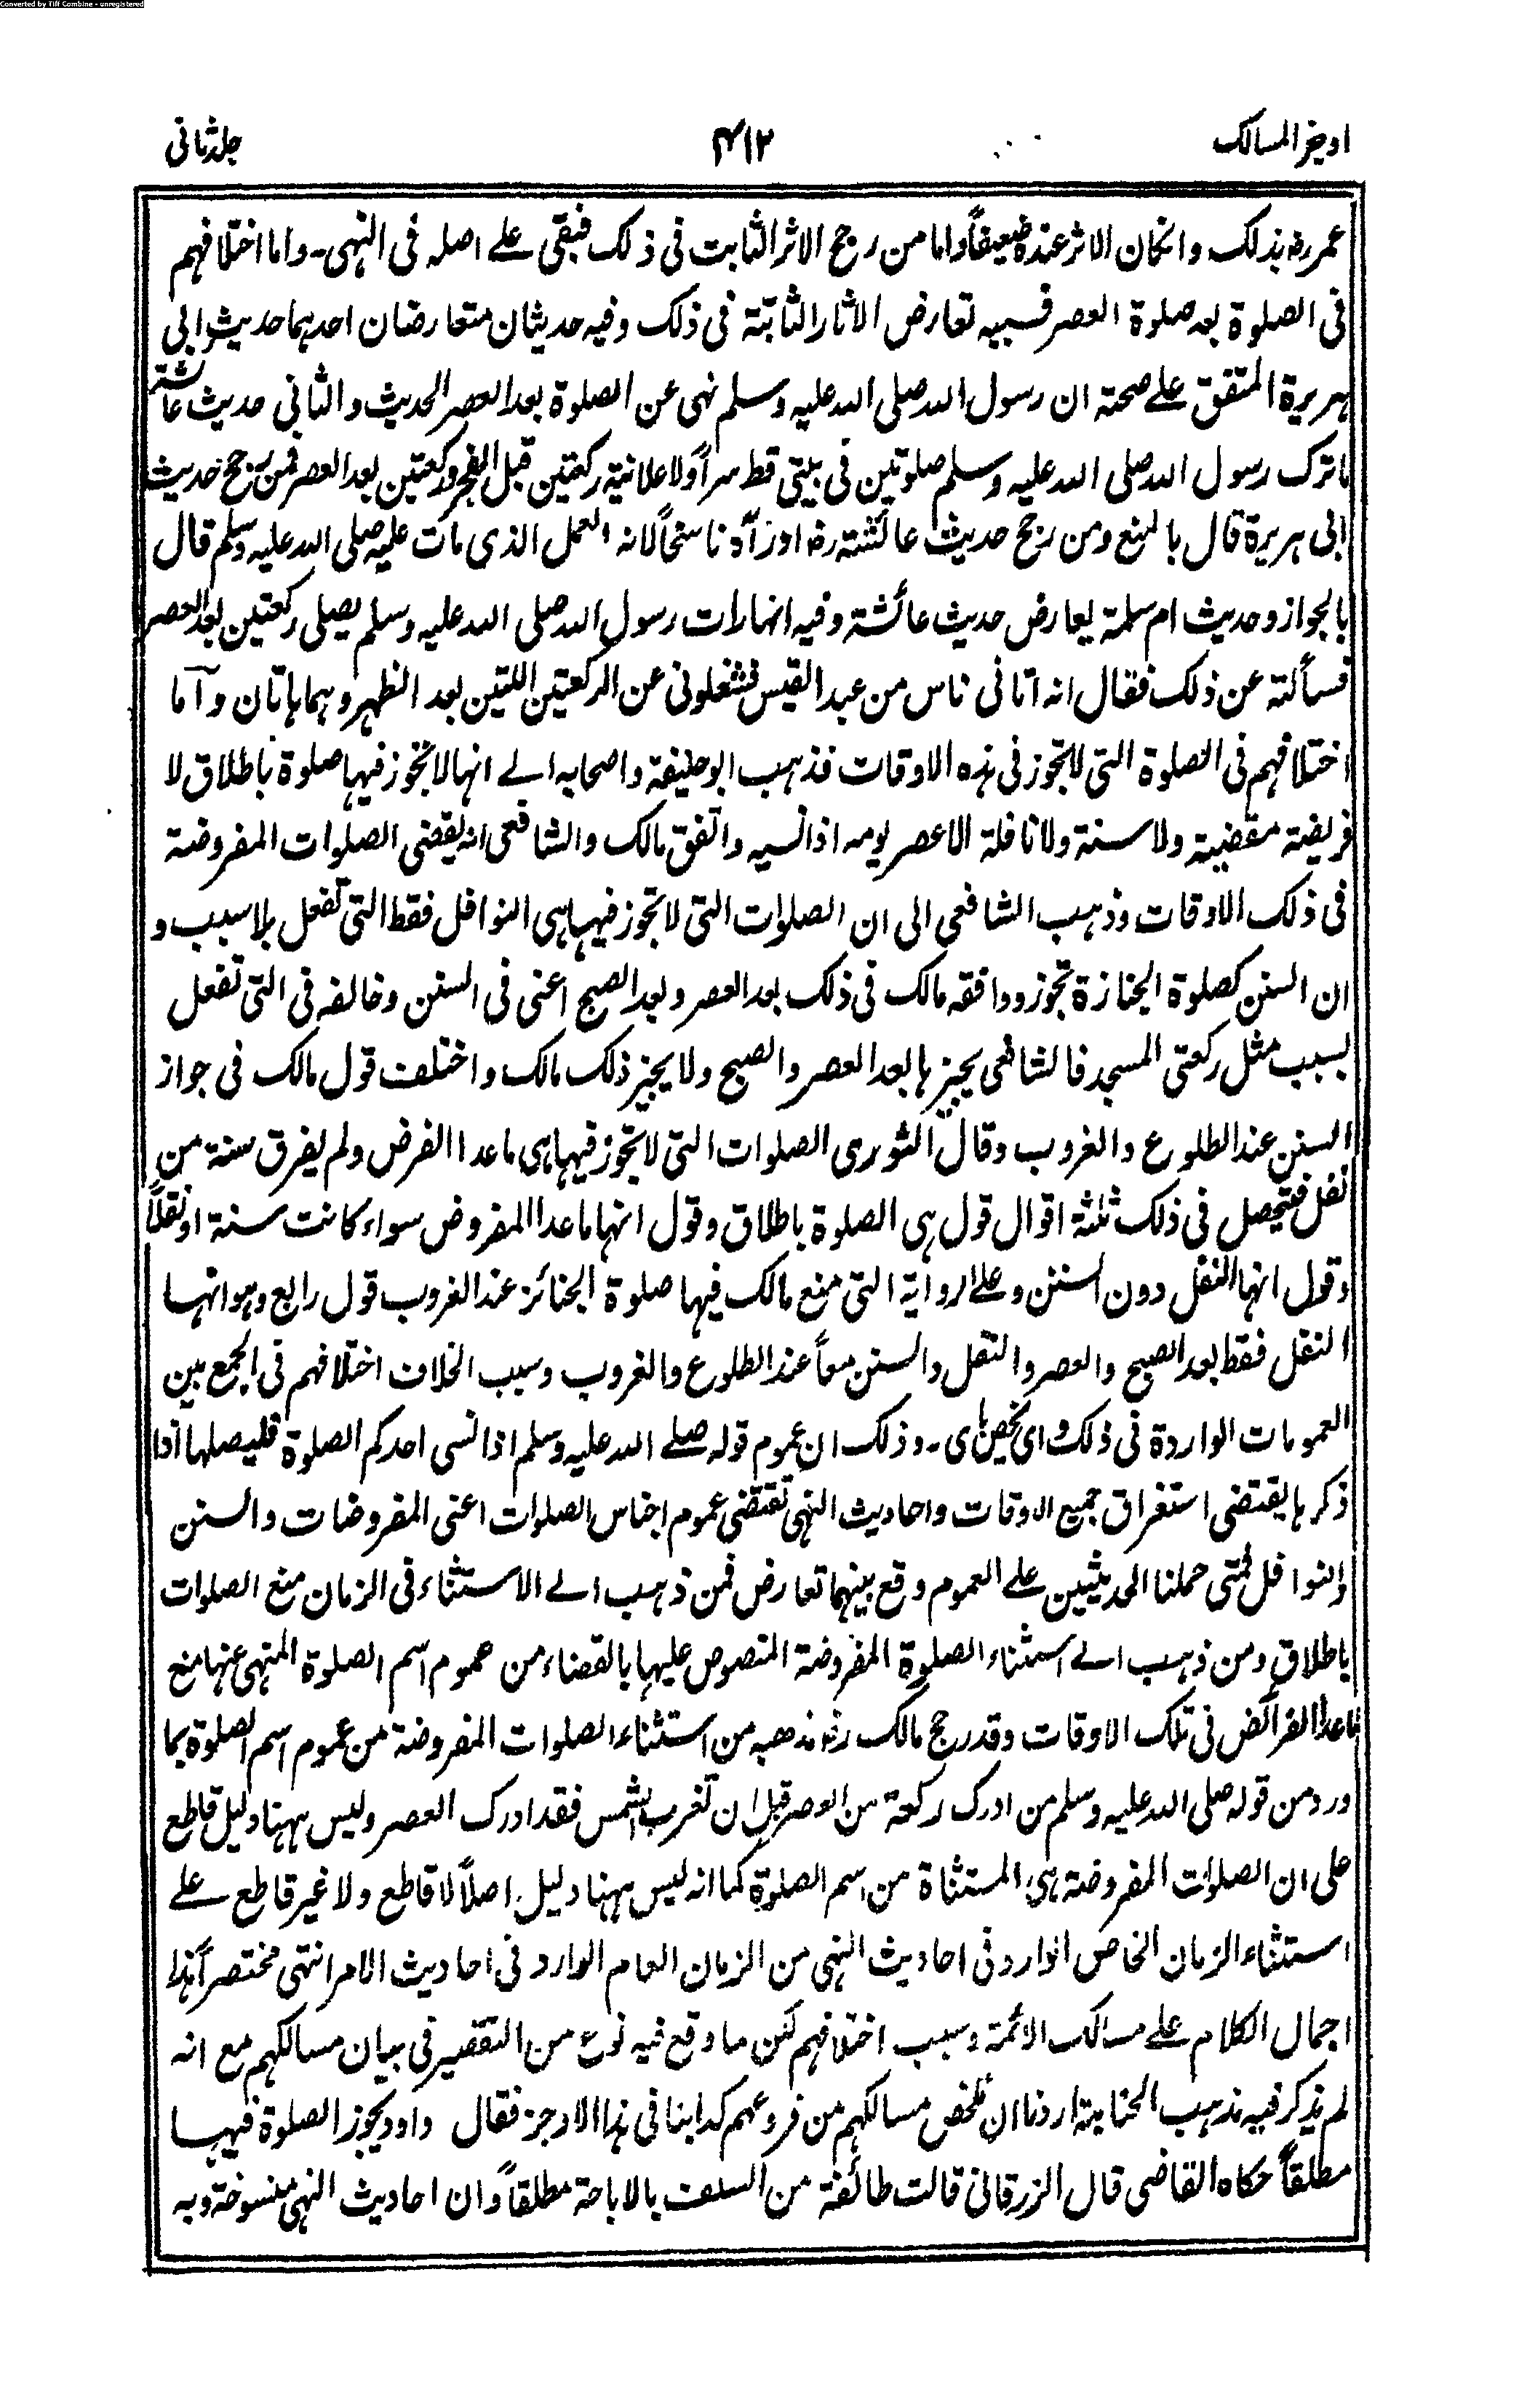 Converted by Tiff Combine - unregistered
اوجز المسالک ۴۱۲ جلد ثانی
عمر رضہ بذلک وانکان الاثر عندہ ضعیفاً واما من رجح الاثر الثابت فی ذلک فبقی علے اصلہ فی النہی۔ واما اختلافہم
فی الصلوۃ بعد صلوۃ العصر فسببہ تعارض الاثار الثابتۃ فی ذلک وفیہ حدیثان متعارضان احدہما حدیث ابی
ہریرۃ المتفق علے صحتہ ان رسول اللہ صلی اللہ علیہ وسلم نہی عن الصلوۃ بعد العصر الحدیث والثانی حدیث عائشۃ
ماترک رسول اللہ صلی اللہ علیہ وسلم صلوتین فی بیتی قط سراً ولا علانیۃ رکعتین قبل الفجر ورکعتین بعد العصر فمن رجح حدیث
ابی ہریرۃ قال بالمنع ومن رجح حدیث عائشۃ رضہ اورآہ ناسخاً لانہ العمل الذی مات علیہ صلی اللہ علیہ وسلم قال
بالجواز وحدیث ام سلمۃ یعارض حدیث عائشۃ وفیہ انہا رات رسول اللہ صلی اللہ علیہ وسلم یصلی رکعتین بعد العصر
فسألتہ عن ذلک فقال انہ اتانی ناس من عبد القیس فشغلونی عن الرکعتین اللتین بعد الظہر وہما ہاتان وآما
اختلافہم فی الصلوۃ التی لاتجوز فی ہذہ الاوقات فذہب ابوحنیفۃ واصحابہ الے انہا لاتجوز فیہا صلوۃ باطلاق لا
فریضۃ مقضیۃ ولا سنۃ ولا نافلۃ الا عصر یومہ اذا نسیہ واتفق مالک والشافعی انہ یقضی الصلوات المفروضۃ
فی ذلک الاوقات وذہب الشافعی الی ان الصلوات التی لاتجوز فیہا ہی النوافل فقط التی تفعل بلا سبب و
ان السنن کصلوۃ الجنازۃ تجوز ووافقہ مالک فی ذلک بعد العصر وبعد الصبح اعنی فی السنن وخالفہ فی التی تفعل
بسبب مثل رکعتی المسجد فالشافعی یجیزہا بعد العصر والصبح ولا یجیز ذلک مالک واختلف قول مالک فی جواز
السنن عند الطلوع والغروب وقال الثوری الصلوات التی لاتجوز فیہا ہی ماعدا الفرض ولم یفرق سنۃ من
نفل فتحصل فی ذلک ثلثۃ اقوال قول ہی الصلوۃ باطلاق وقول انہا ماعدا المفروض سواء کانت سنۃ او نفلاً
وقول انہا النفل دون السنن وعلے الروایۃ التی منع مالک فیہا صلوۃ الجنائز عند الغروب قول رابع وہو انہا
النفل فقط بعد الصبح والعصر والنفل والسنن معاً عند الطلوع والغروب وسبب الخلاف اختلافہم فی الجمع بین
العمومات الواردۃ فی ذلک وای یخص بای۔ وذلک ان عموم قولہ صلے اللہ علیہ وسلم اذا نسی احدکم الصلوۃ فلیصلہا اذا
ذکرہا یقتضی استغراق جمیع الاوقات واحادیث النہی تقتضی عموم اجناس الصلوات اعنی المفروضات والسنن
والنوافل فمتی حملنا الحدیثین علے العموم وقع بینہما تعارض فمن ذہب الے الاستثناء فی الزمان منع الصلوات
باطلاق ومن ذہب الے استثناء الصلوۃ المفروضۃ المنصوص علیہا بالقضاء من عموم اسم الصلوۃ المنہی عنہا منع
ماعدا الفرائض فی تلک الاوقات وقد رجح مالک رضہ مذہبہ من استثناء الصلوات المفروضۃ من عموم اسم الصلوۃ بما
ورد من قولہ صلی اللہ علیہ وسلم من ادرک رکعۃ من العصر قبل ان تغرب الشمس فقد ادرک العصر ولیس ہہنا دلیل قاطع
علی ان الصلوات المفروضۃ ہی المستثناۃ من اسم الصلوۃ کما انہ لیس ہہنا دلیل اصلاً لا قاطع ولا غیر قاطع علے
استثناء الزمان الخاص الوارد فی احادیث النہی من الزمان العام الوارد فی احادیث الامر انتہی مختصراً ہذا
اجمال الکلام علے مسالک الائمۃ وسبب اختلافہم لکن ما وقع فیہ نوع من التقصیر فی بیان مسالکہم مع انہ
لم یذکر فیہ مذہب الحنابلۃ اردنا ان نلخص مسالکہم من فروعہم کدابنا فی ہذا الاوجز فقال داود یجوز الصلوۃ فیہا
مطلقاً حکاہ القاضی قال الزرقانی قالت طائفۃ من السلف بالاباحۃ مطلقاً وان احادیث النہی منسوخۃ وبہ